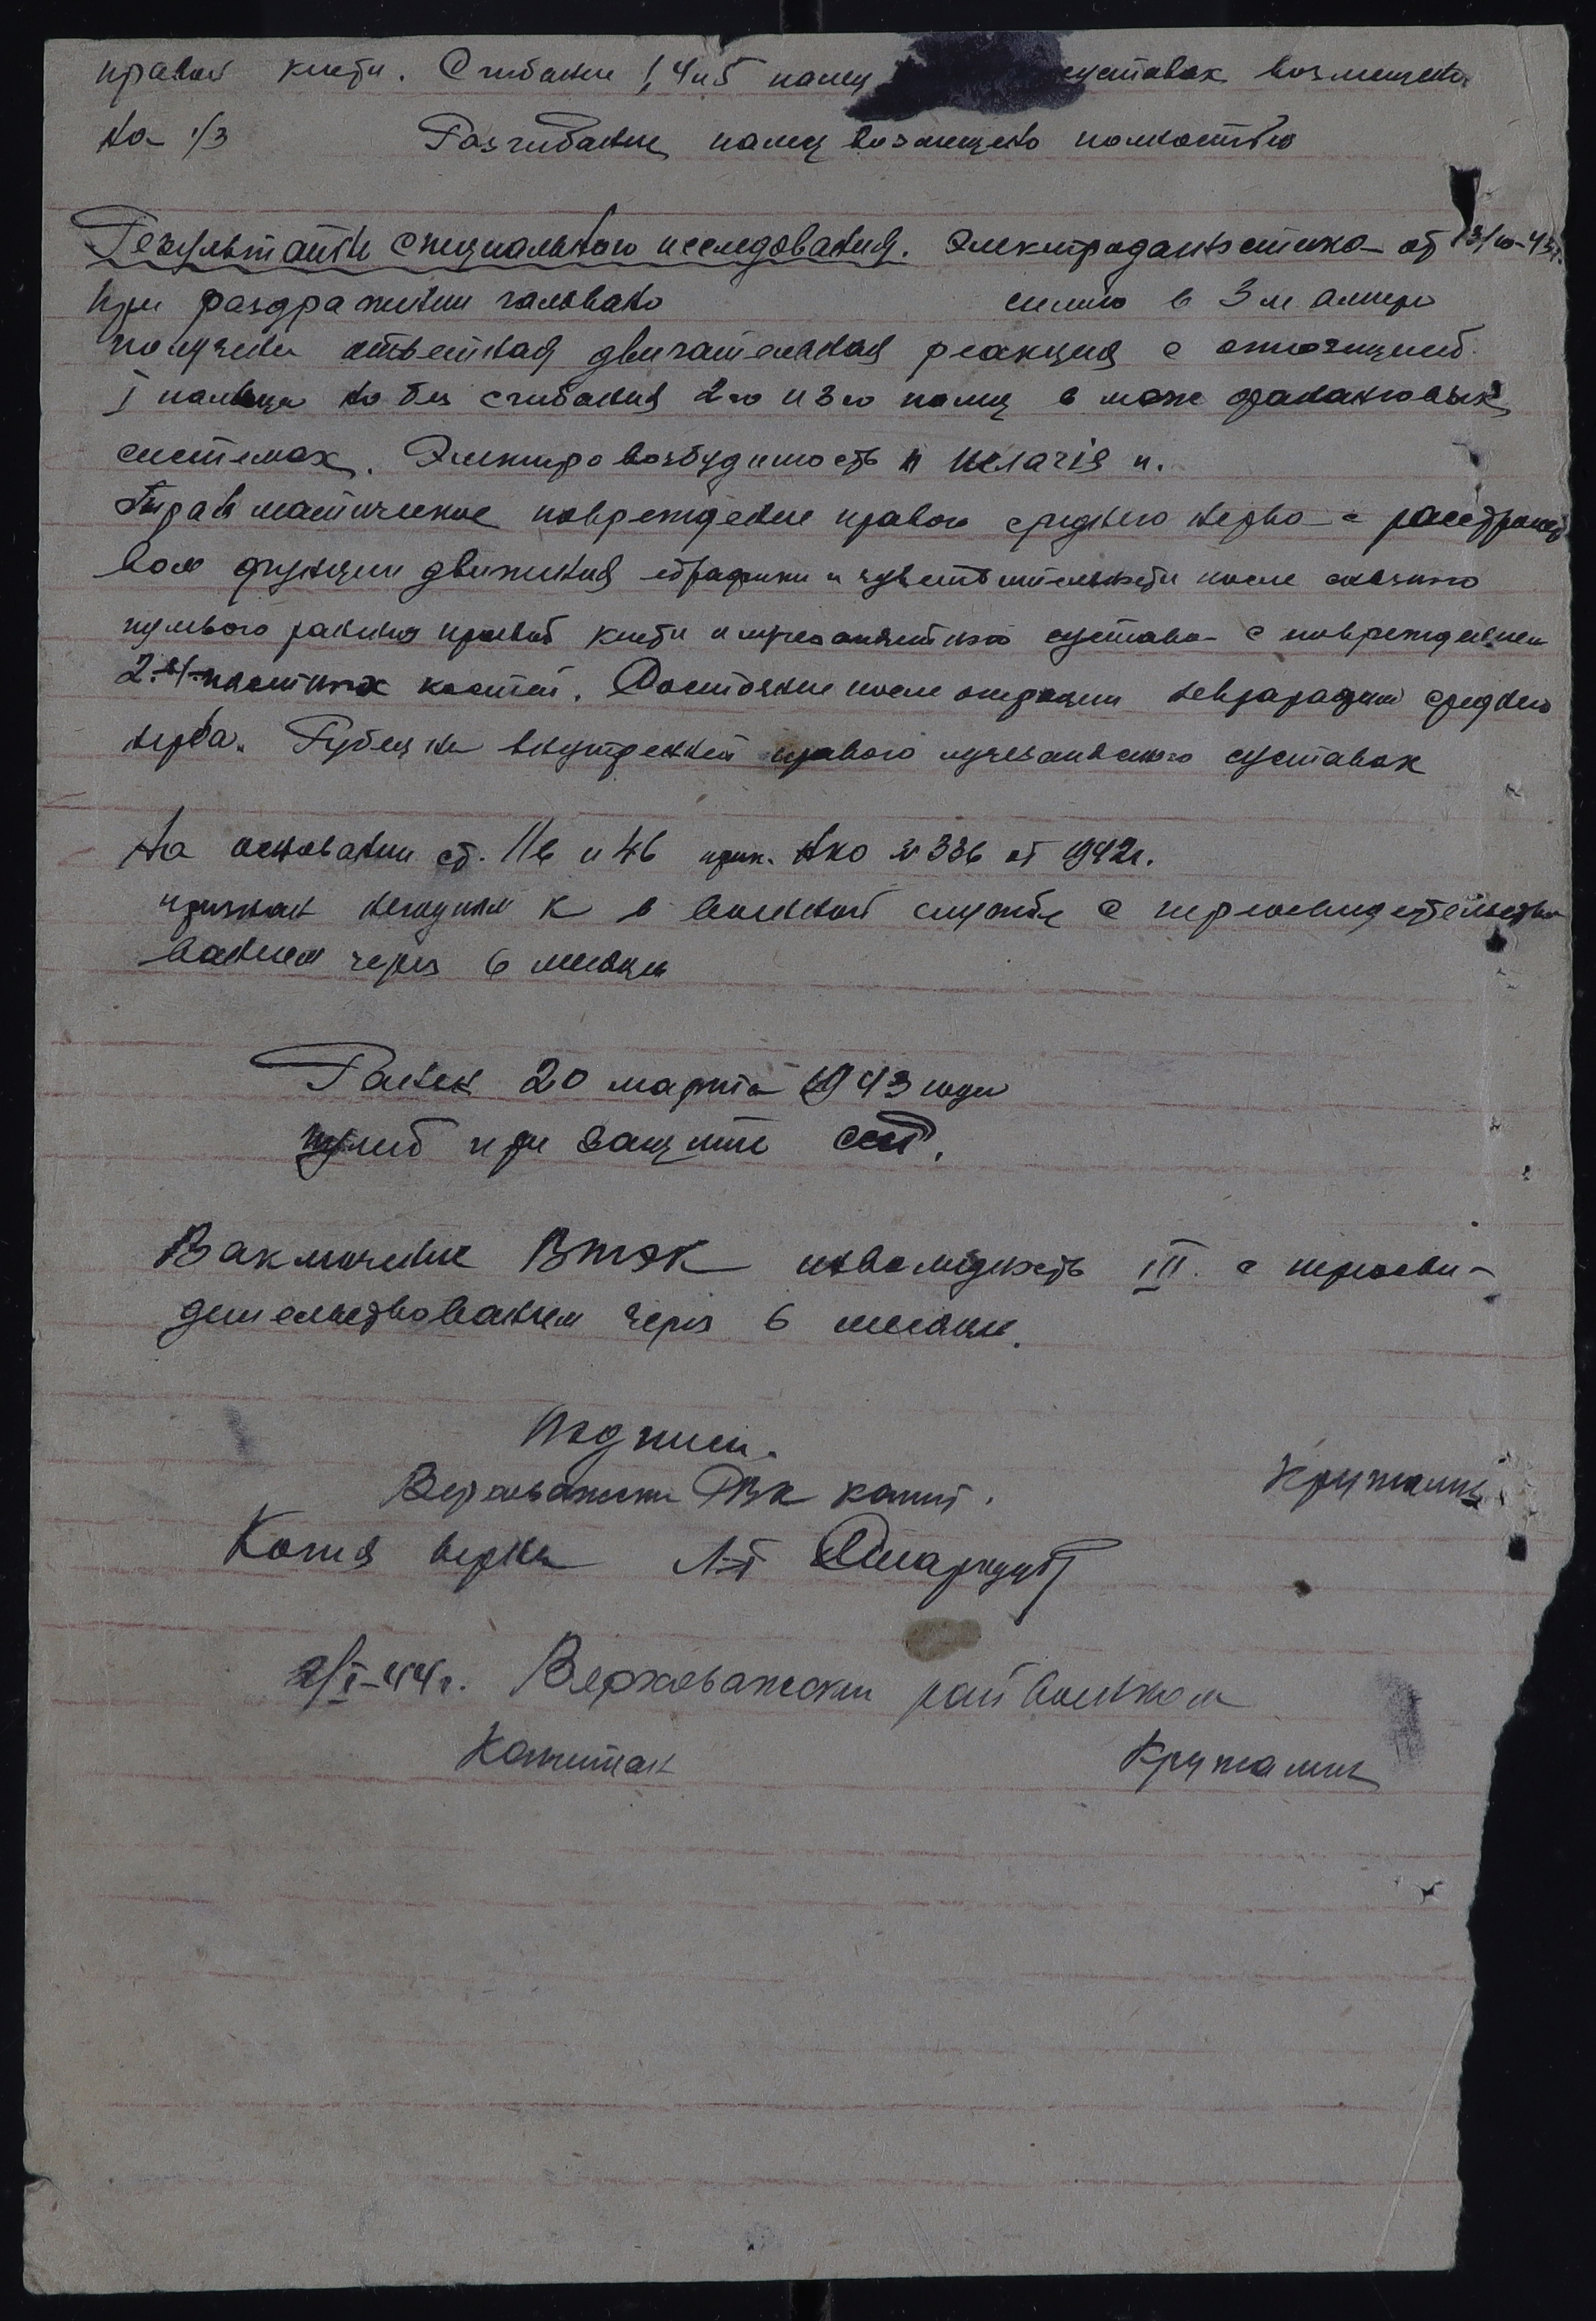 правой кисти. Сгибание 1, 4 и 5 палец суставах возможно
на 1/3 Разгибание палец возможно полностью
Результаты специального исследования. Электродиагностика от 13/10-43г.
при раздражении гальвано силою в 3 м ампер
получена ответная двигательная реакция с
I пальца но без сгибания 2го и 3го палец в меж фаланговых
системах. Электровозбудимость п
Травматическое повреждение правого среднего нерва с расстройст
вом функции движения и чувствительности после
пулевого ранения правой кисти и лучезапястного сустава с повреждением
2-4 пястных костей. Состояние после операции невроррафии среднего
нерва. Рубец на внутренней правого лучезапястного суставах
На основании ст. 11в и 4б прик. НКО № 336 от 1942г.
признан негодным к в военной службе с переосвидетельство
ванием через 6 месяцев
Ранен 20 марта 1943 года
пулей при защите ссср.
Заключение ВТЭК инвалидность III. с переосви-
детельствованием через 6 месяцев.
Подписи.
Верховажский РВК капит. Кружалин
Копия верна Л-т
2/I-44г. Верховажский райвоенком
Капитан Кружалин